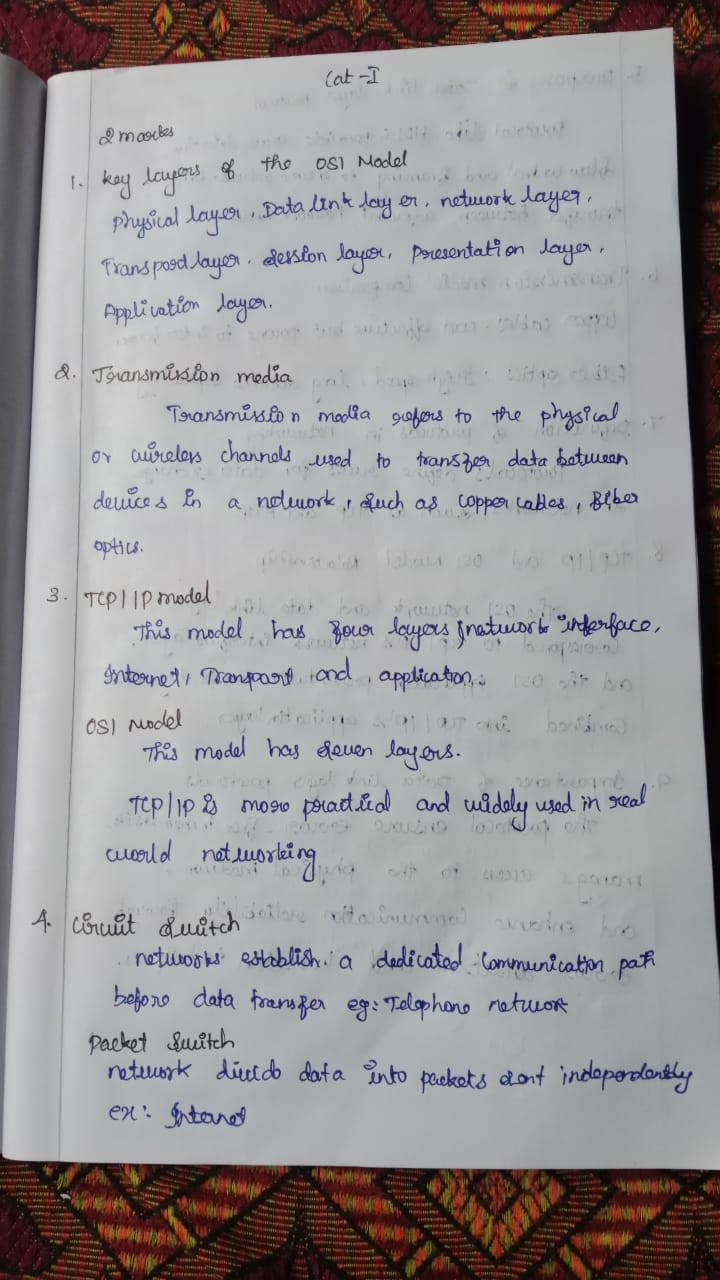 Cat-I
2 marks
1. Key layers of the OSI Model
physical layer, Data link layer, network layer,
Transport layer. session layer, presentation layer,
Application layer.
2. Transmission media
Transmission media refers to the physical
or wireless channels used to transfer data between
devices in a network, such as copper cables, fiber
optics.
3. TCP/IP model
This model has four layers network interface,
Internet, Transport and application.
OSI Model
This model has seven layers.
TCP/IP is more practical and widely used in real
world networking
4. Circuit switch
networks establish a dedicated communication path
before data transfer eg: Telephone network
Packet switch
network divide data into packets sent independently
ex: Internet